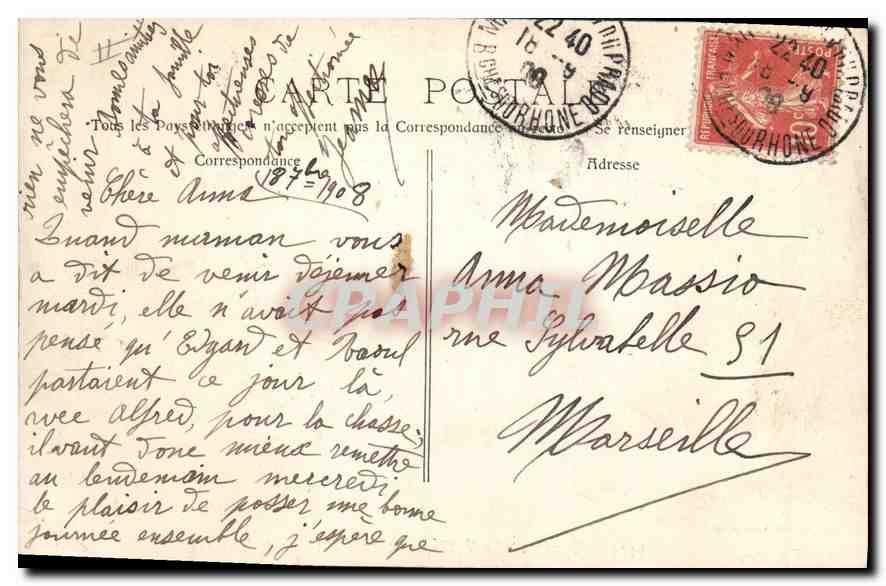 CARTE POSTALE
Tous les Pays étrangers n'acceptent pas la Correspondance au recto. Se renseigner
Correspondance
Adresse
18 7bre 1908
Chère Anna
Quand maman vous
a dit de venir déjeuner
mardi, elle n'avait pas
pensé qu'Edgard et Raoul
partaient ce jour là,
avec Alfred, pour la chasse;
il vaut donc mieux remettre
au lendemain mercredi
le plaisir de passer une bonne
journée ensemble, j'espère que
rien ne vous
empêchera de
venir
à ta famille
et pour toi
caresses de
ton
Mademoiselle
Anna Massio
rue Sylvabelle 91
Marseille
22 40
18 - 9
08
BCHES DU RHONE
PRADO
REPUBLIQUE FRANÇAISE
POSTES
10
CPAPHIL